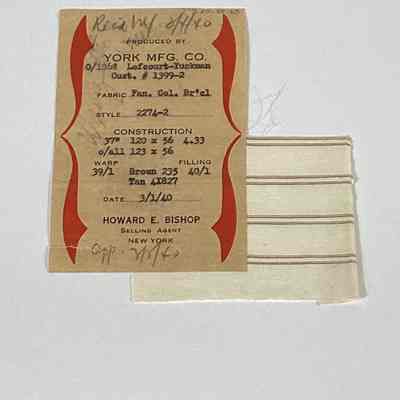 Rec'd NY 3/4/40
PRODUCED BY
YORK MFG. CO.
Lefcourt-Yuckman
Cust. # 1399-2
FABRIC Fan. Col. Br'cl
STYLE 2274-2
CONSTRUCTION
37" 120 x 56 4.33
o/all 123 x 56
WARP FILLING
39/1 Brown 235 40/1
Tan 4X827
DATE 3/1/40
HOWARD E. BISHOP
SELLING AGENT
NEW YORK